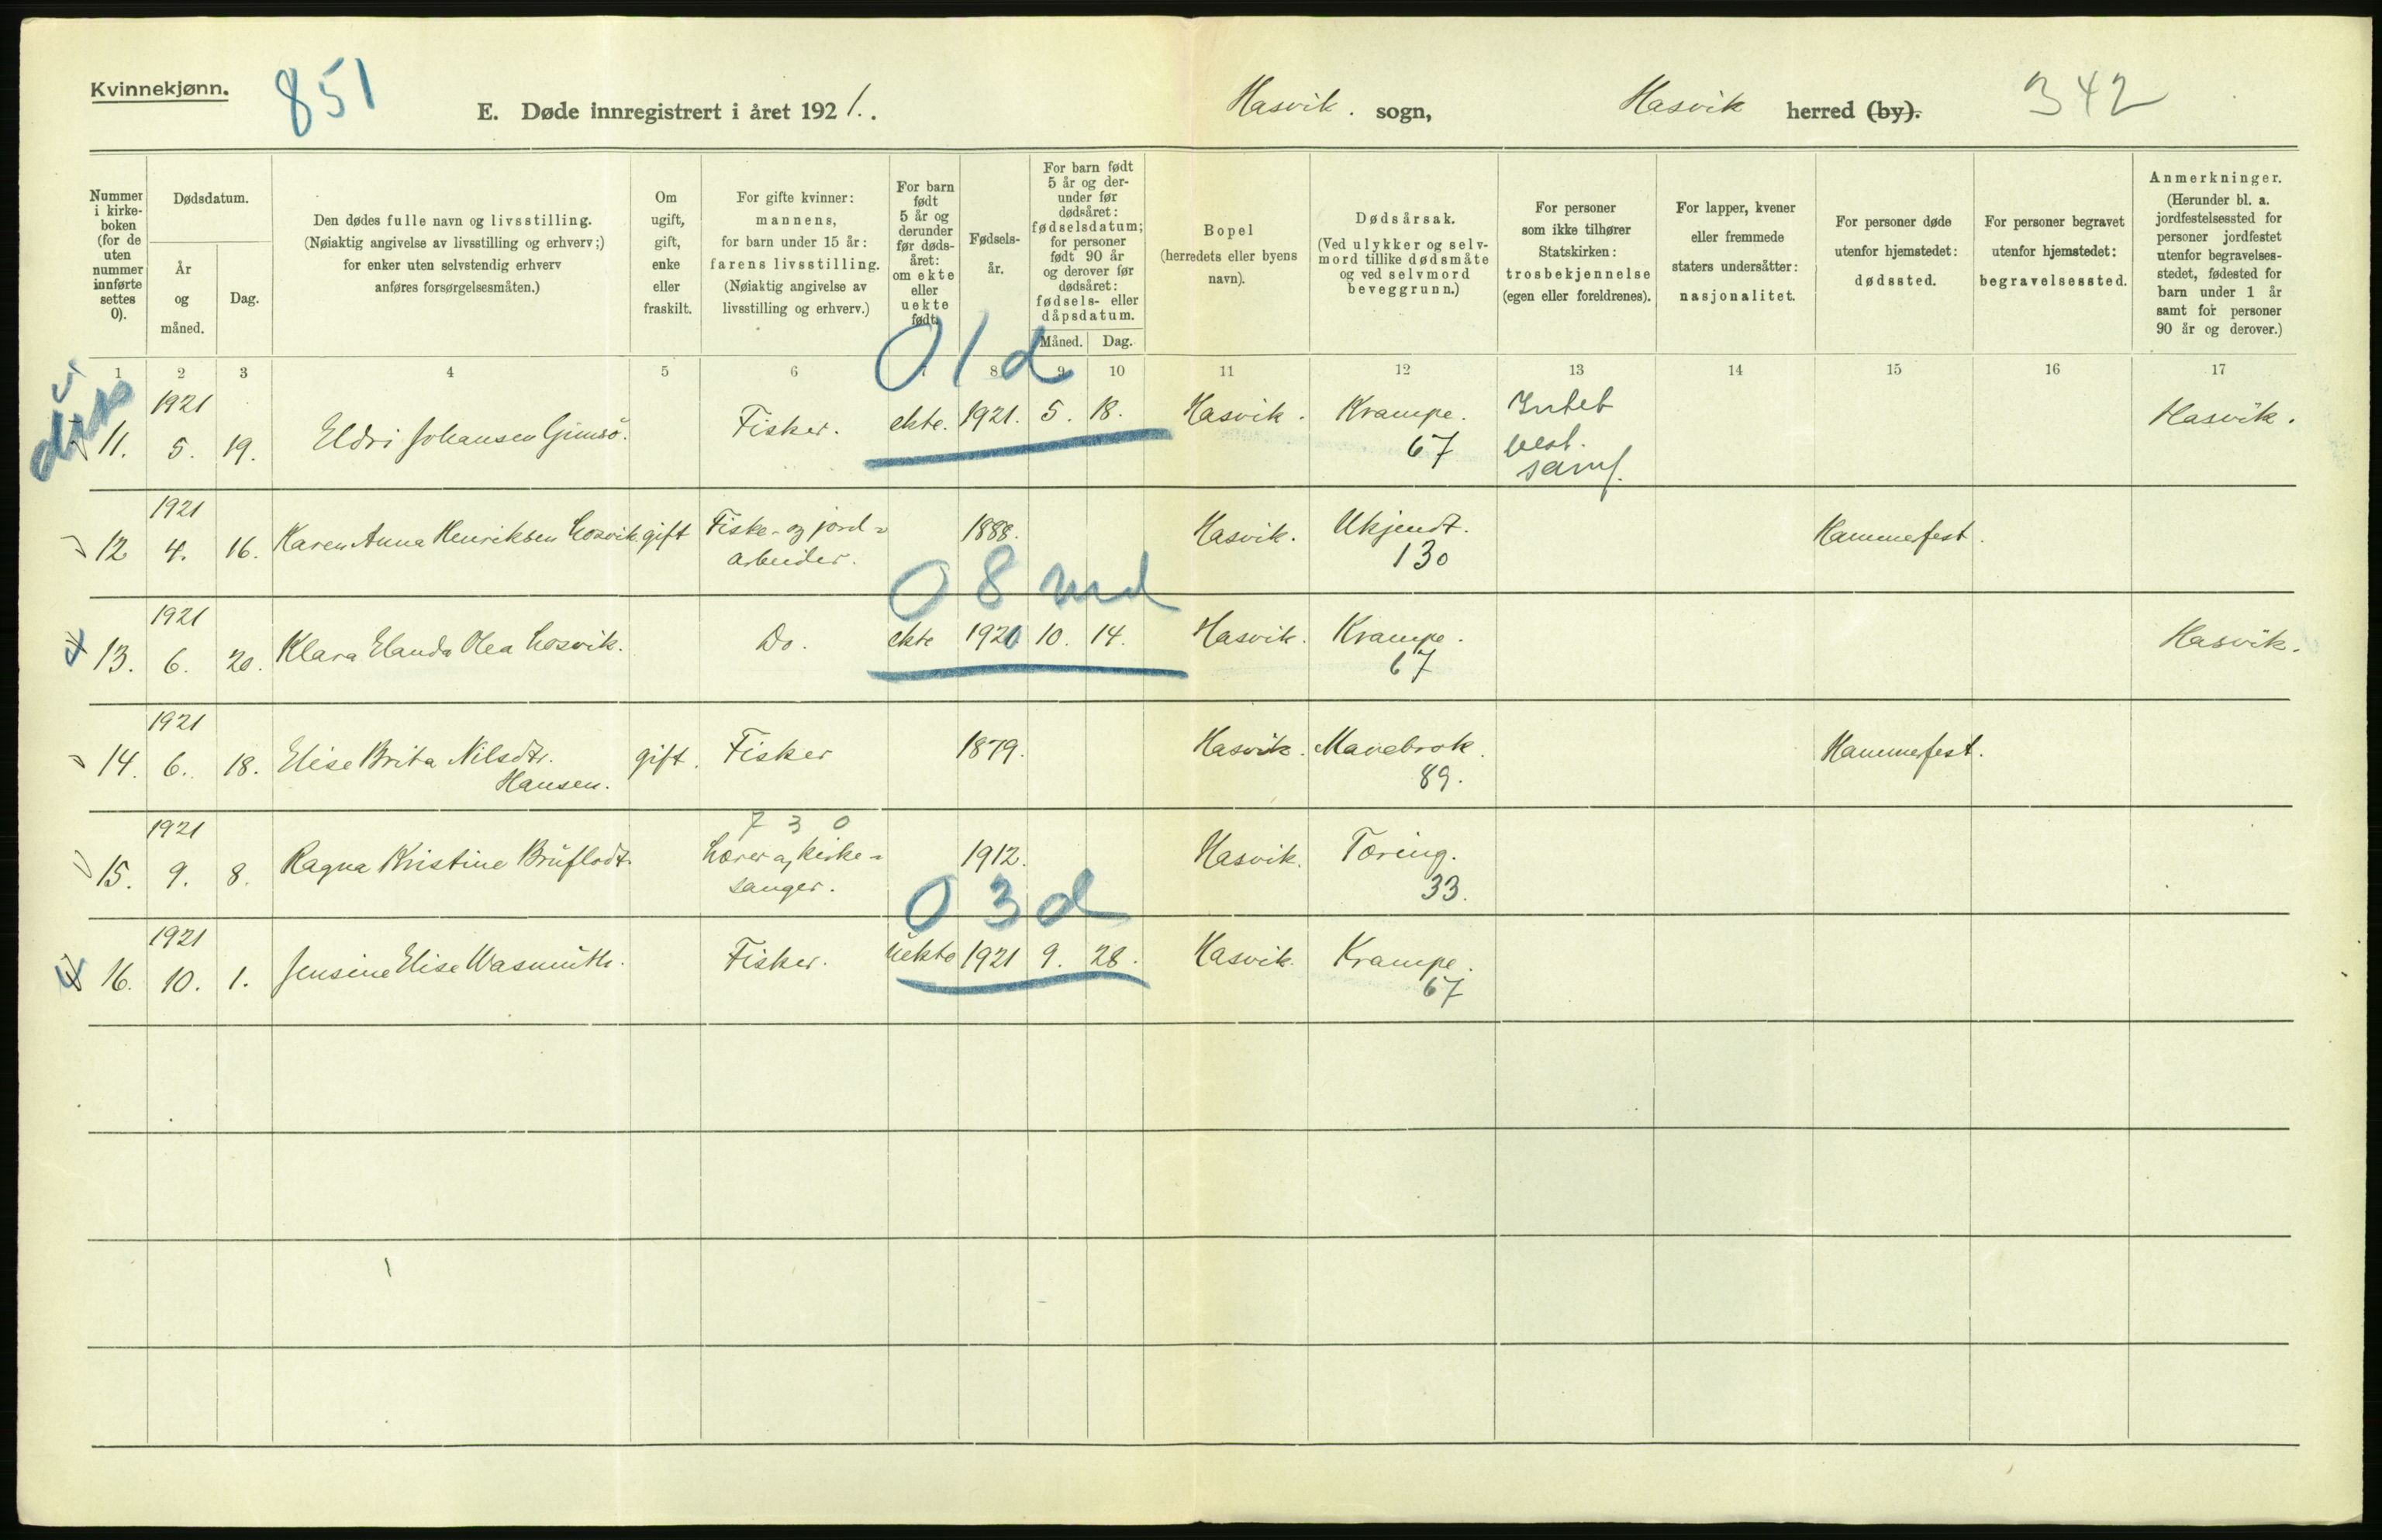 Kvinnekjønn.
851
E. Døde innregistrert i året 1921. .
Hasvik. sogn,
Hasvik herred (by).
342
Nummer i kirke- boken (for de uten nummer innførte settes 0).
Dødsdatum.
År og måned.
Dag.
Den dødes fulle navn og livsstilling.
(Nøiaktig angivelse av livsstilling og erhverv;)
for enker uten selvstendig erhverv
anføres forsørgelsesmåten.)
Om ugift, gift, enke eller fraskilt.
For gifte kvinner:
mannens,
for barn under 15 år:
farens livsstilling.
(Nøiaktig angivelse av
livsstilling og erhverv.)
For barn født 5 år og derunder før døds- året: om ekte eller uekte født.
Fødsels- år.
For barn født 5 år og der- under før dødsåret: fødselsdatum; for personer født 90 år og derover før dødsåret: fødsels- eller dåpsdatum.
Måned.
Dag.
Bopel
(herredets eller byens
navn).
Dødsårsak.
(Ved ulykker og selv-
mord tillike dødsmåte
og ved selvmord
beveggrunn.)
For personer
som ikke tilhører
Statskirken:
trosbekjennelse
(egen eller foreldrenes).
For lapper, kvener
eller fremmede
staters undersåtter:
nasjonalitet.
For personer døde
utenfor hjemstedet:
dødssted.
For personer begravet
utenfor hjemstedet:
begravelsessted.
Anmerkninger.
(Herunder bl. a.
jordfestelsessted for
personer jordfestet
utenfor begravelses-
stedet, fødested for
barn under 1 år
samt for personer
90 år og derover.)
1 2 3 4 5 6 7 8 9 10 11 12 13 14 15 16 17
0 1 d
1921
11. 5. 19. Eldri Johansen Gimsö. Fisker. ekte. 1921. 5. 18. Hasvik. Krampe. 67 Intet best. samf. Hasvik.
1921
12 4. 16. Karen Anna Henriksen Losvik gift Fiske- og jord- arbeider. 1888. Hasvik. Ukjendt. 130 Hammerfest.
0 8 md
1921
13. 6. 20. Klara Elanda Olea Losvik. Do. ekte 1920 10. 14. Hasvik. Krampe. 67 Hasvik.
1921
14. 6. 18. Elise Brita Nilsdtr. Hansen. gift. Fisker 1879. Hasvik. Mavebrok. 89. Hammerfest.
7 3 0
1921
15. 9. 8. Ragna Kristine Brüflodt Lærer og kirke- sanger. 1912. Hasvik. Tæring. 33.
0 3 d
1921
16. 10. 1. Jensine Elise Wasmuth. Fisker. uekte 1921 9. 28. Hasvik. Krampe. 67